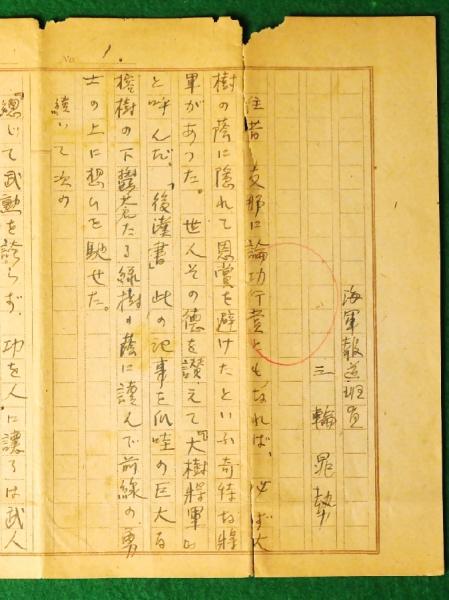 No. 1.
海軍報道班員
三輪晁勢
往昔 支那に論功行賞ともなれば、必ず大
樹の蔭に隠れて恩賞を避けたといふ奇特な将
軍があつた。世人その徳を讃えて『大樹將軍』
と呼んだ。「後漢書」此の記事を爪哇の巨大な
榕樹の下鬱蒼たる緑樹の蔭に讀んで前線の勇
士の上に想ひを馳せた。
続いて次の
「總じて武勲を誇らず、功を人に譲るは武人